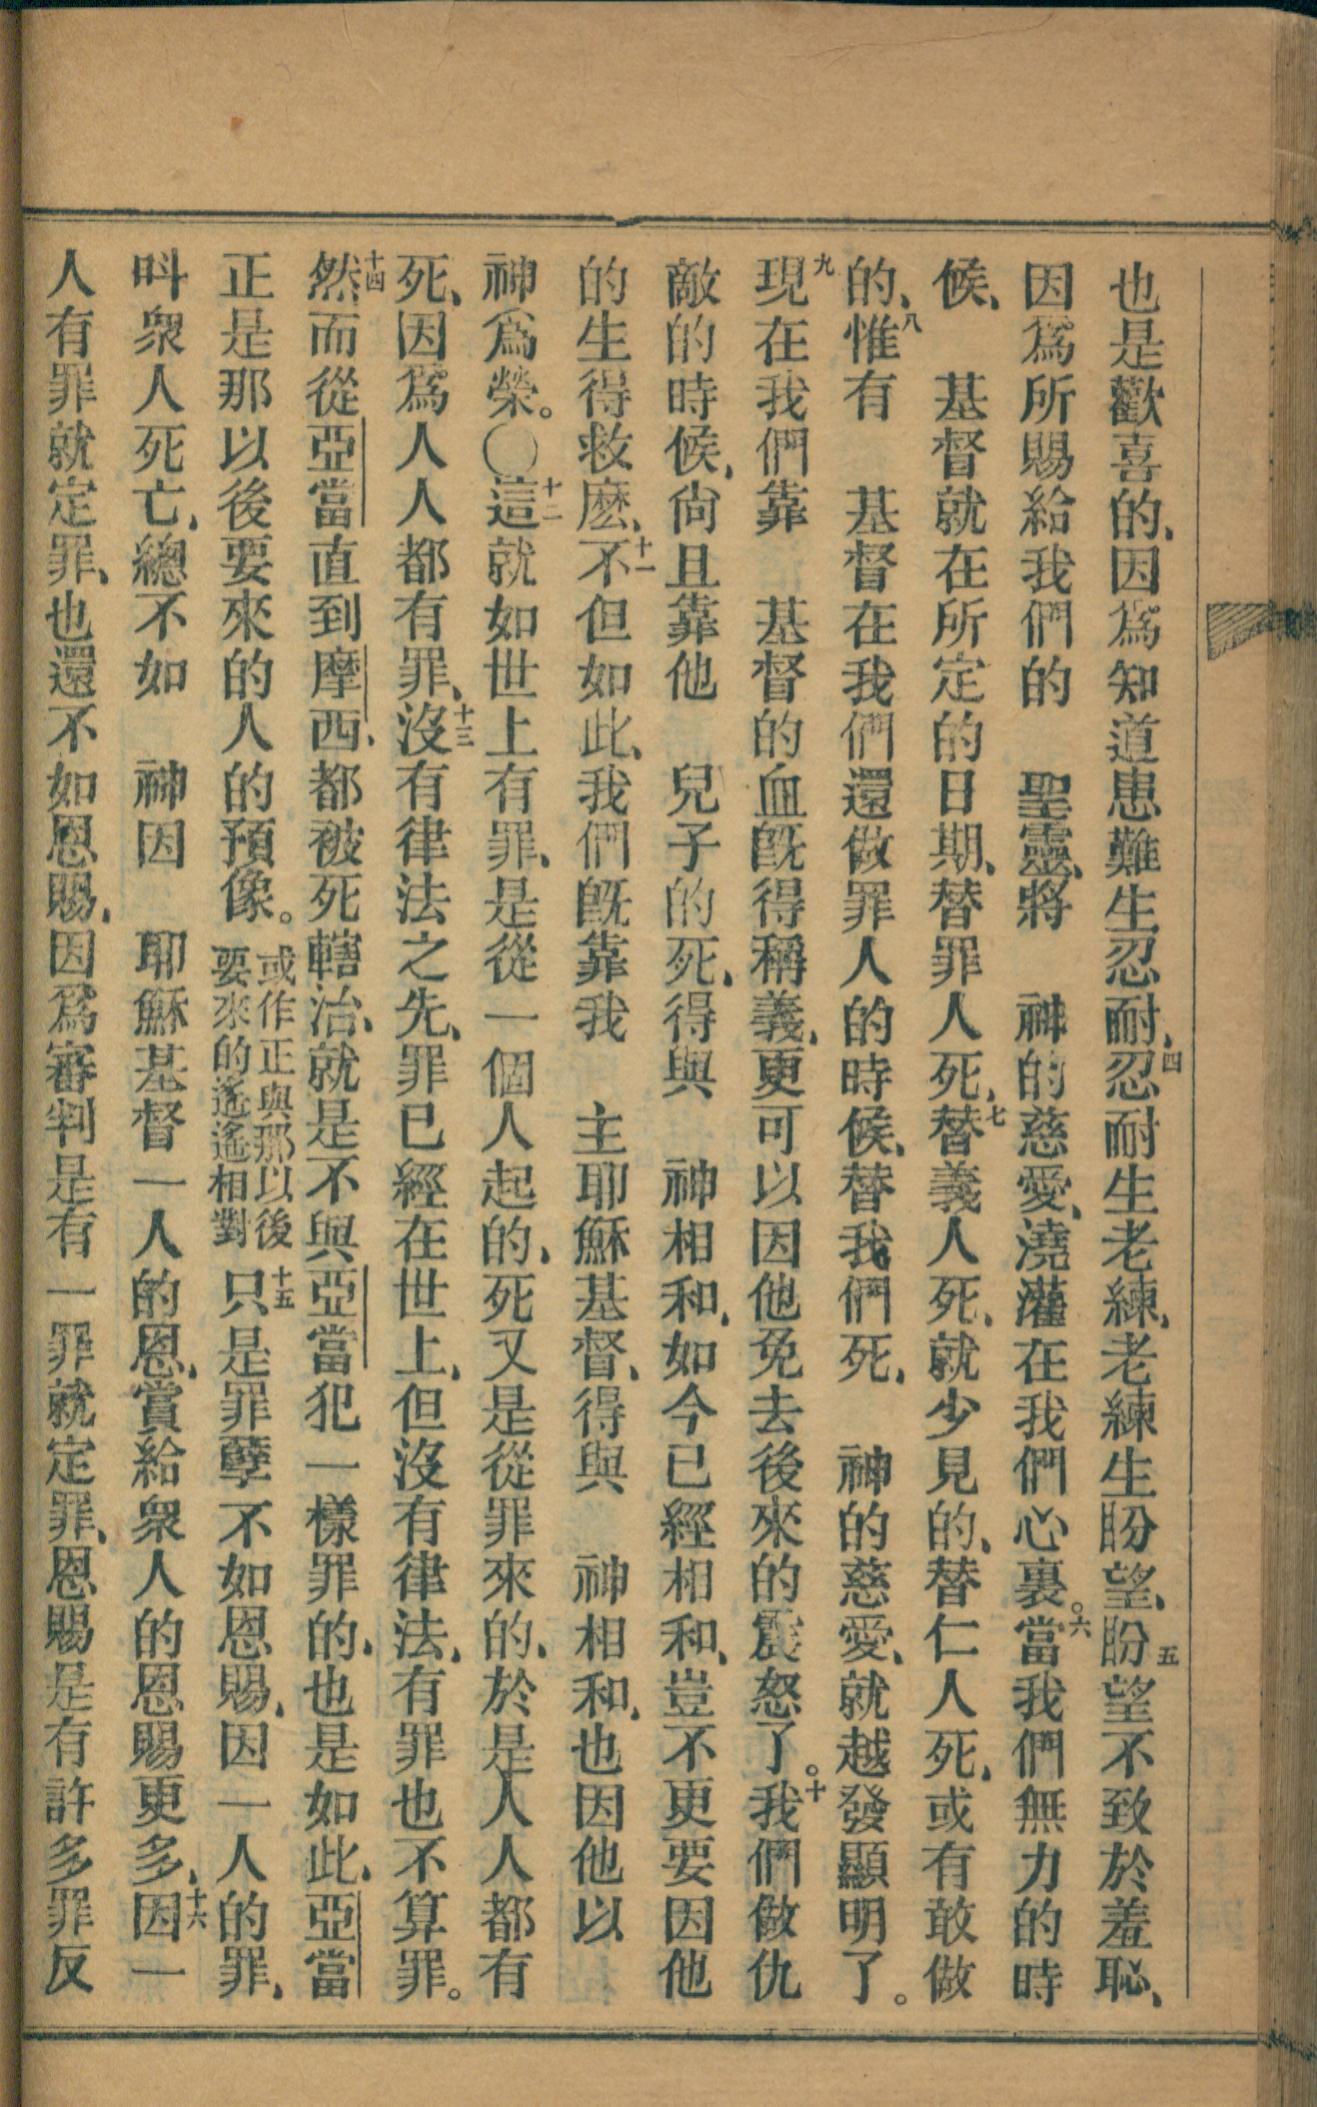 也是歡喜的、因爲知道患難生忍耐、四忍耐生老練、老練生盼望、五盼望不致於羞恥、
因爲所賜給我們的　聖靈、將　神的慈愛、澆灌在我們心裏。六當我們無力的時
候、　基督就在所定的日期、替罪人死、七替義人死、就少見的、替仁人死、或有敢做
的、八惟有　基督在我們還做罪人的時候、替我們死、　神的慈愛、就越發顯明了。
九現在我們靠　基督的血旣得稱義、更可以因他免去後來的震怒了。十我們做仇
敵的時候、尙且靠他　兒子的死、得與　神相和、如今已經相和、豈不更要因他
的生得救麽、十一不但如此、我們旣靠我　主耶穌基督、得與　神相和、也因他以
神爲榮。〇十二這就如世上有罪、是從一個人起的、死又是從罪來的、於是人人都有
死、因爲人人都有罪、十三沒有律法之先、罪已經在世上、但沒有律法、有罪也不算罪。
十四然而從亞當直到摩西、都被死轄治、就是不與亞當犯一樣罪的、也是如此、亞當
正是那以後要來的人的預像。或作正與那以後要來的遙遙相對十五只是罪孽不如恩賜、因一人的罪、
呌衆人死亡、總不如　神因　耶穌基督一人的恩、賞給衆人的恩賜更多、十六因一
人有罪就定罪、也還不如恩賜、因爲審判是有一罪就定罪、恩賜是有許多罪反